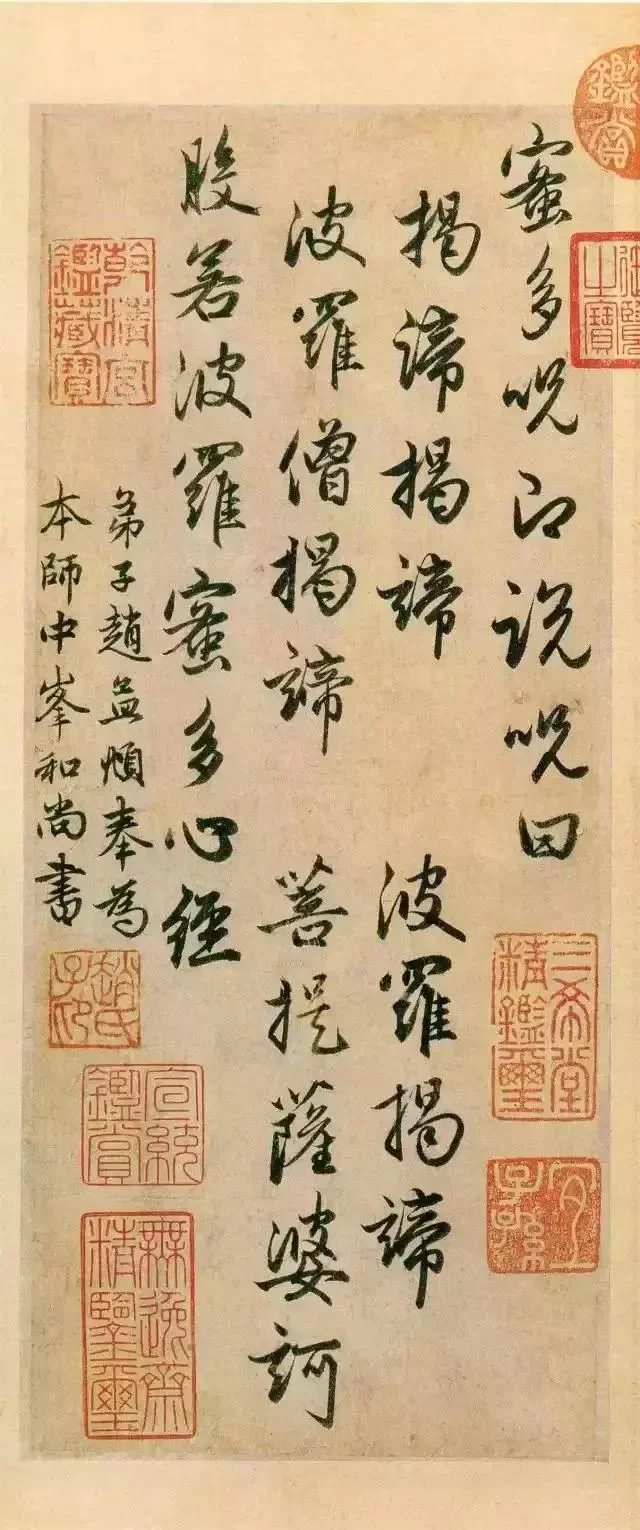 蜜多呪即说呪曰
揭諦揭諦 波羅揭諦
波羅僧揭諦 菩提薩婆訶
般若波羅蜜多心經
弟子趙孟頫奉為
本師中峯和尚書
鑑賞
御覽之寶
三希堂精鑑璽
宜子孫
乾清宮鑑藏寶
趙氏子印
宣統鑑賞
無逸齋精鑒璽